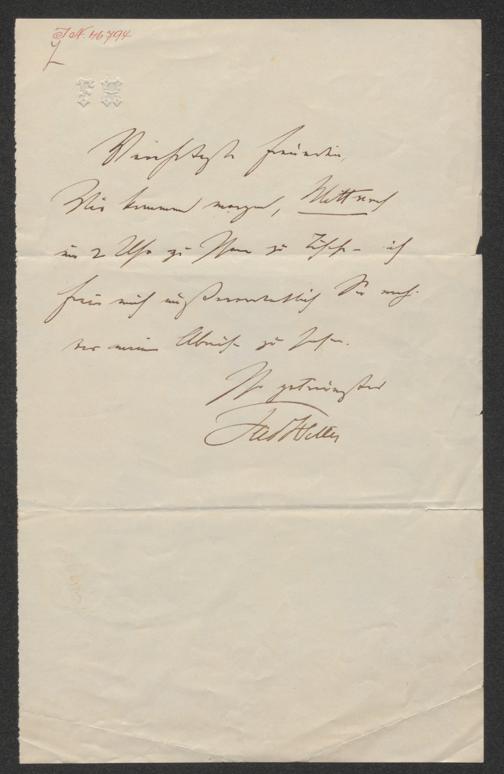 I.N. 46794
F H
Verehrteste Freundin,
Wir kommen morgen, Mittwoch
um 2 Uhr zu Ihnen zu Tische – ich
freue mich außerordentlich Sie noch
vor meiner Abreise zu sehen.
Ihr getreuester
FerdHiller